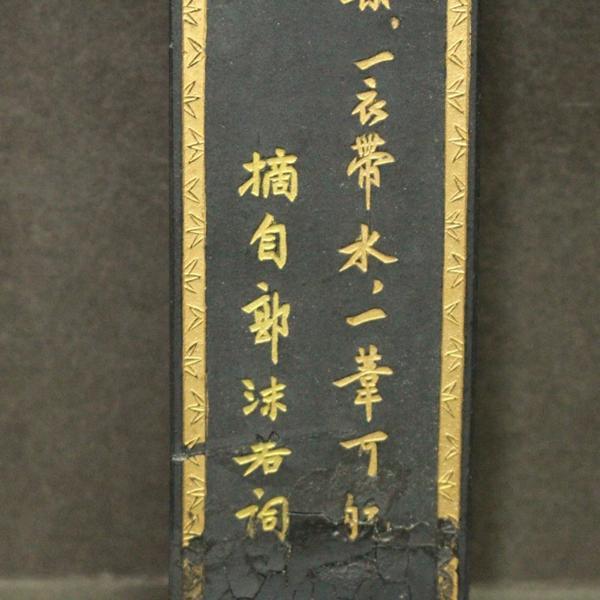 ，一衣帶水，一葦可航
摘自郭沫若词